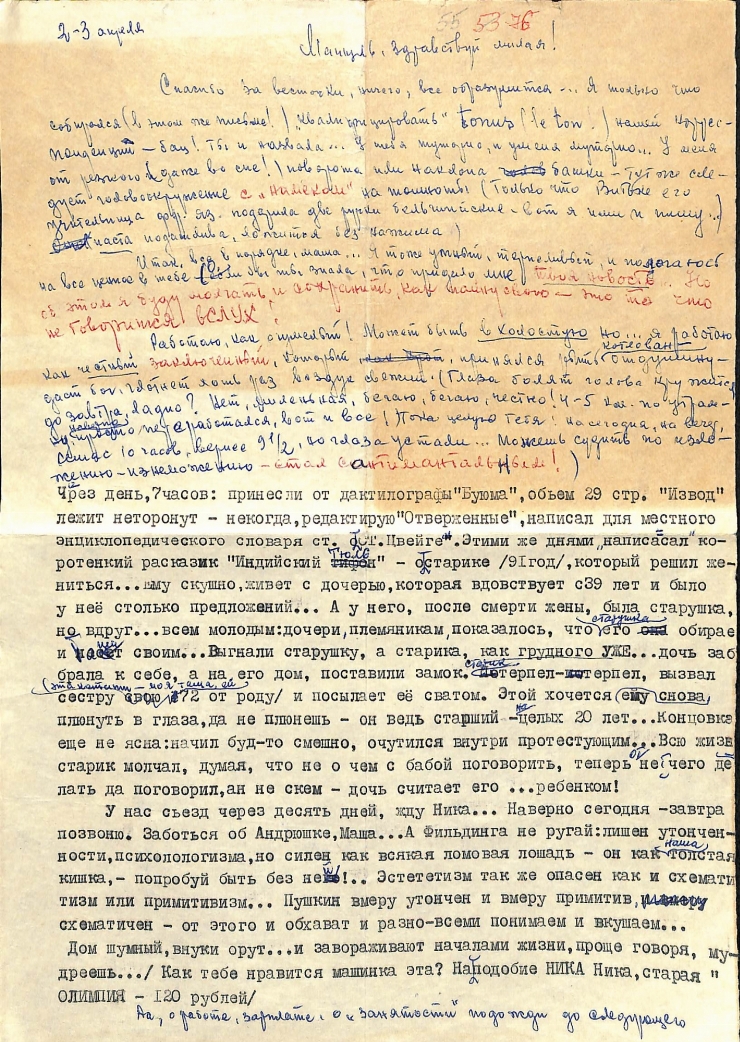 55 53 76
2-3 апреля
Манцуль, здравствуй милая!
Спасибо за весточки, ничего, все образумится... Я только что
собирался (в этом же письме!) "квалифицировать" tonus (le ton!) нашей коррес-
понденции - бац! Ты и назвала... У тебя муторно, и у меня муторно... У меня
от резкого (даже во сне!) поворота или наклона башки - тут же сле-
дует головокружение с "намеком" на тошноты (Только что Витвже его
учительница фр. яз. подарила две ручки бельгийские - вот я ими и пишу...)
паста податлива, ложится без нажима!)
Итак, все в порядке, маша... Я тоже умный, терпеливый, и полагаюсь
на все ценное в тебе (если бы ты знала, что придало мне твоя новость... Но
об этом я буду молчать и сохранить, как тайну свою - это то что
не говорится вслух!
Работаю, как осмелый! Может быть в холостую но... я работаю
как честный заключенный, который принялся рыть котлован отдушину-
даст бог, глотнет хоть раз воздух свежий. (Глаза болят голова кружится
до завтра, ладно? Нет, миленькая, бегаю, бегаю, честно! 4-5 км. по утрам-
просто переработался, вот и все! Пока целую тебя! на сегодня, на вечер,
сейчас 10 часов, вернее 9 1/2, но глаза устали... Можешь судить по изло-
жению-изнеможению - стал сантимантальным!)
Чрез день,7часов: принесли от дактилографы"Буюма",обьем 29 стр. "Извод"
лежит неторонут - некогда,редактирую"Отверженные",написал для местного
энциклопедического словаря ст. "Ст.Цвейге".Этими же днями"написасал"ко-
ротенкий расказик "Индийский Гюль" - о старике /91год/,который решил же-
ниться...Ему скушно,живет с дочерью,которая вдовствует с39 лет и было
у неё столько предложений... А у него, после смерти жены, была старушка,
но вдруг...всем молодым:дочери,племяникам,показалось, что старушка его обирае
и поет своим...Выгнали старушку, а старика, как грудного УЖЕ...дочь заб
брала к себе, а на его дом, поставили замок. Старик терпел-терпел, вызвал
сестру свою /72 от роду/ и посылает её сватом. Этой хочется ему снова
плюнуть в глаза,да не плюнешь - он ведь старший -на целых 20 лет...Концовка
еще не ясна:начил буд-то смешно, очутился внутри протестующим...Всю жизн
старик молчал, думая, что не о чем с бабой поговорить, теперь от нечего де
лать да поговорил,ан не скем - дочь считает его ...ребенком!
У нас сьезд через десять дней, жду Ника... Наверно сегодня -завтра
позвоню. Заботься об Андрюшке,Маша...А Фильдинга не ругай:лишен утончен-
ности,психологизма,но силен как всякая ломовая лошадь - он как наша толстая
кишка,- попробуй быть без неё!.. Эстететизм так же опасен как и схемати
тизм или примитивизм... Пушкин вмеру утончен и вмеру примитив,
схематичен - от этого и обхават и разно-всеми понимаем и вкушаем...
Дом шумный,внуки орут...и завораживают началами жизни,проще говоря, му-
дреешь.../ Как тебе нравится машинка эта? Наподобие НИКА Ника,старая "
ОЛИМПИЯ - 120 рублей/
Да, о работе, зарплате, о "занятости" подожди до следующего